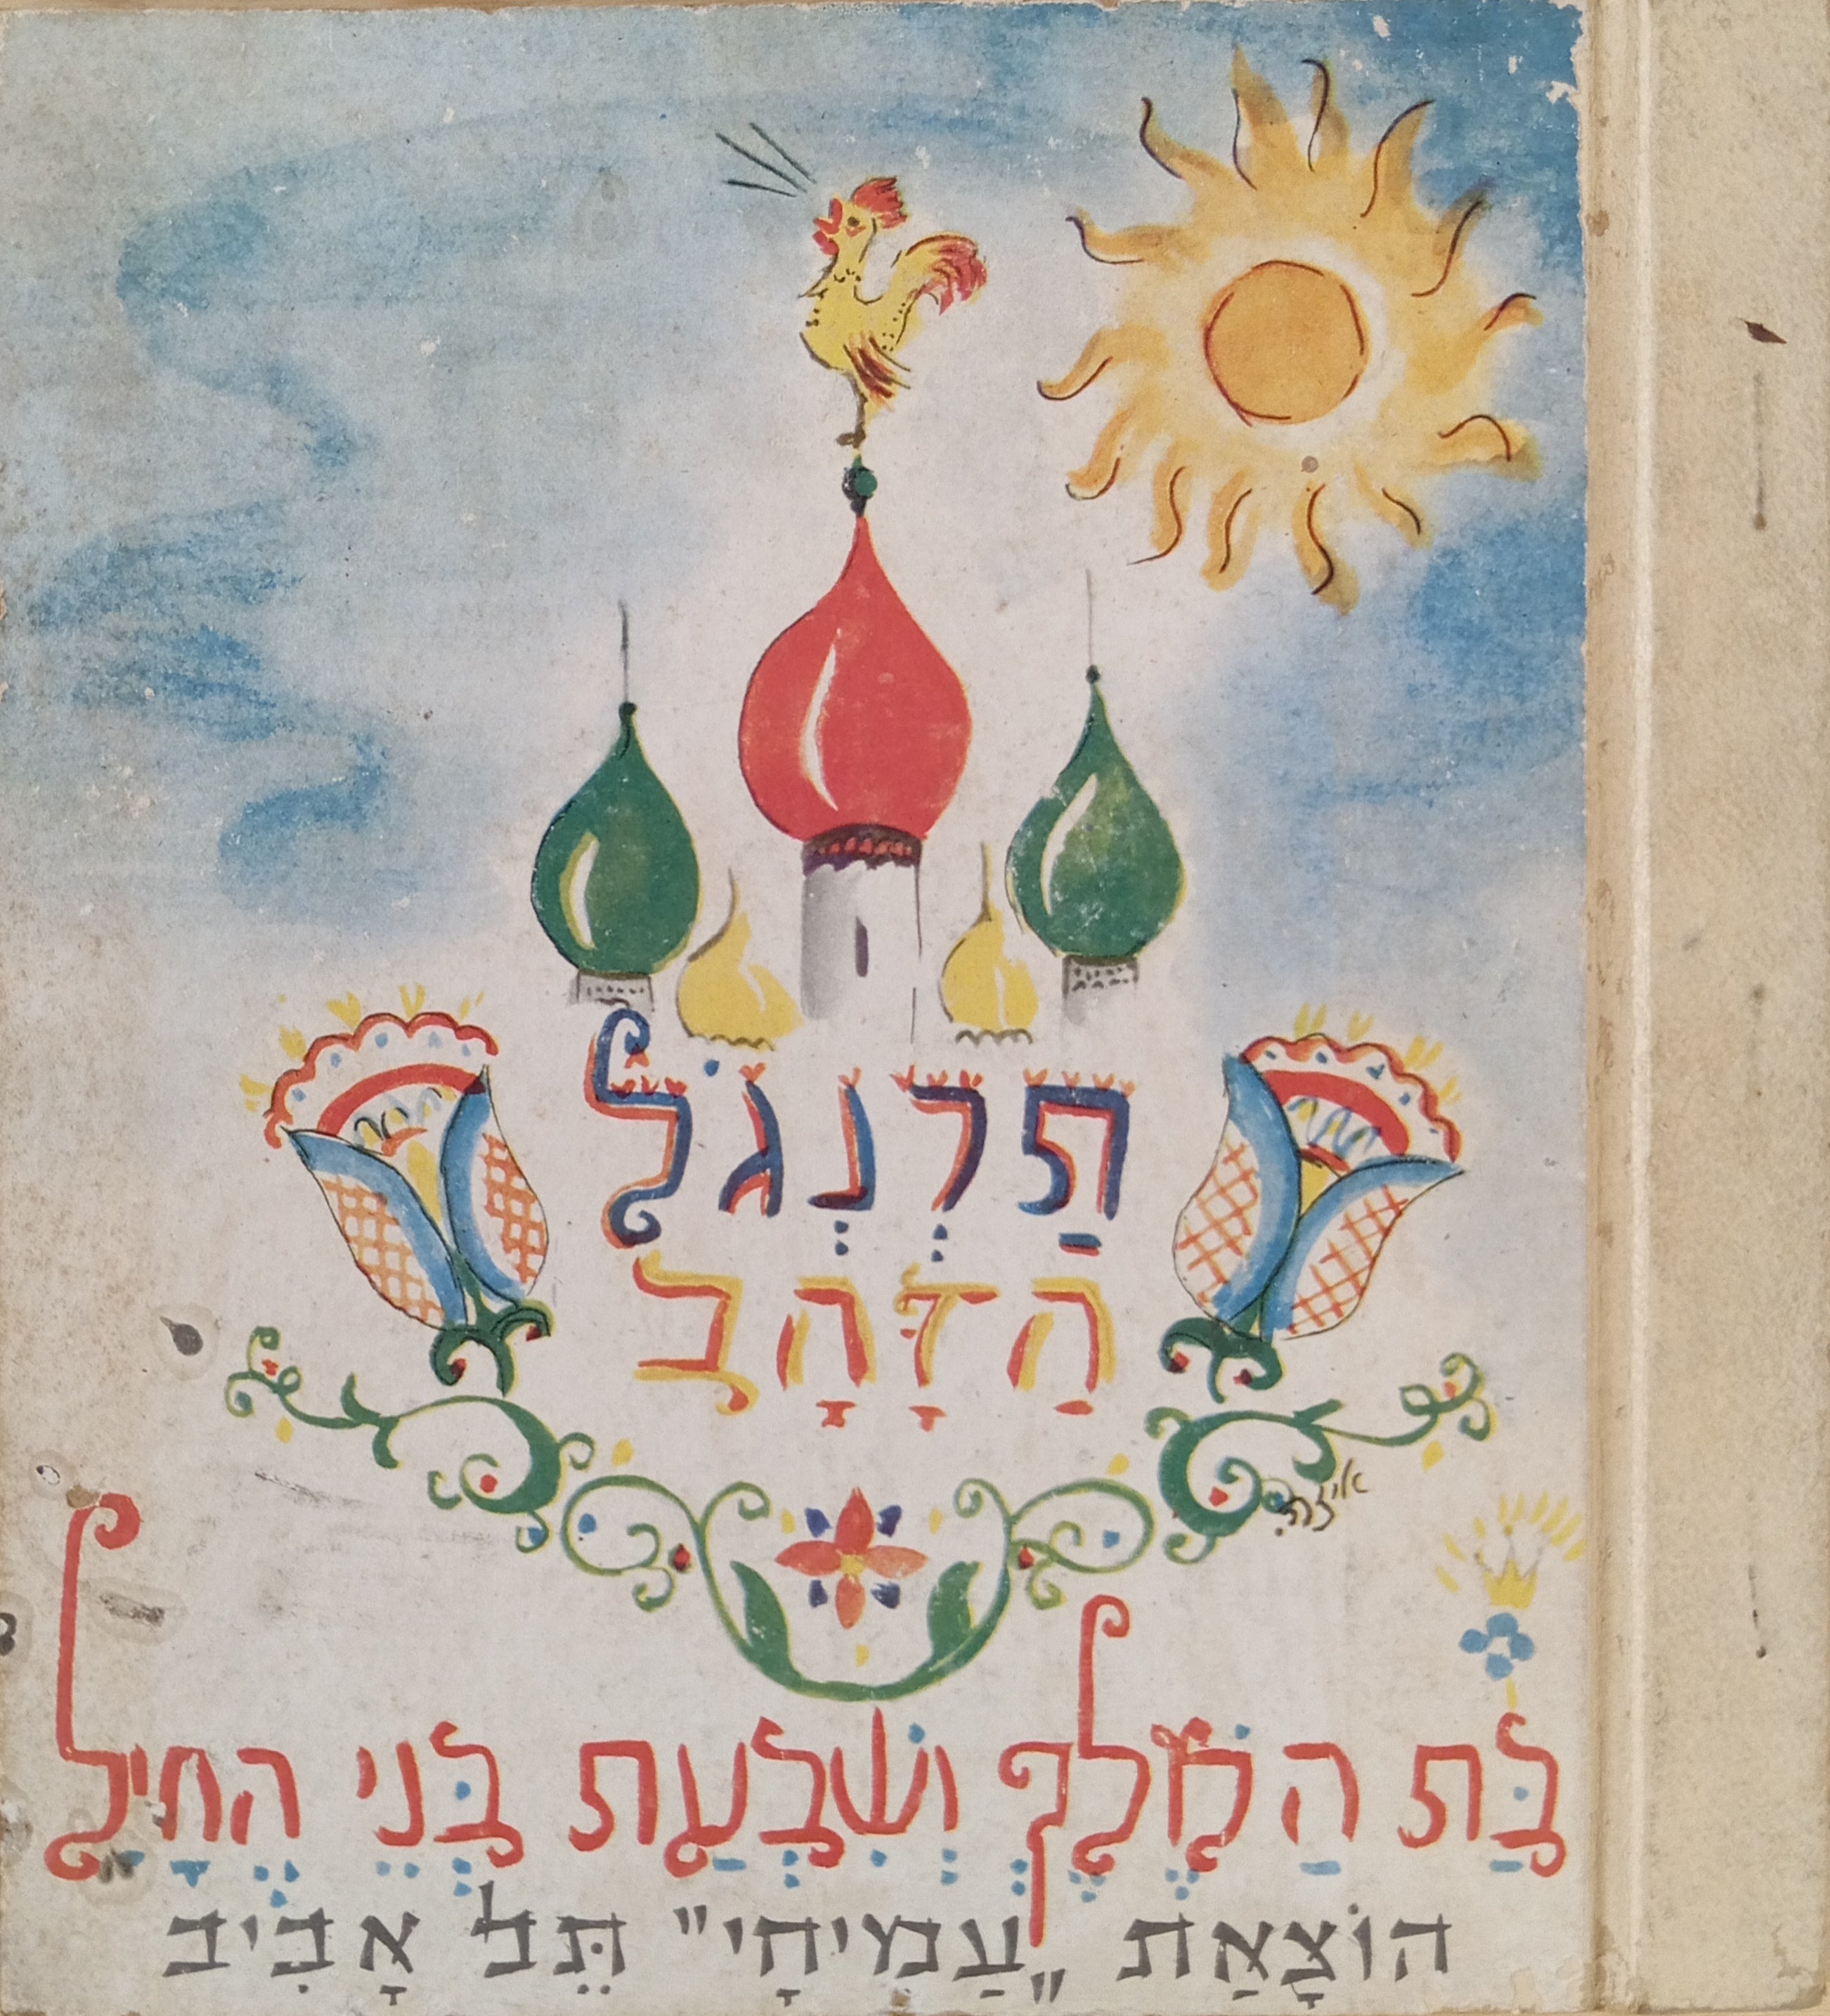 תַּרְנְגֹל
הַזָּהָב
איזה
בַּת הַמֶּלֶךְ וְשִׁבְעַת בְּנֵי הֶחָיִל
הוֹצָאַת „עַמִיחָי" תֵּל אָבִיב